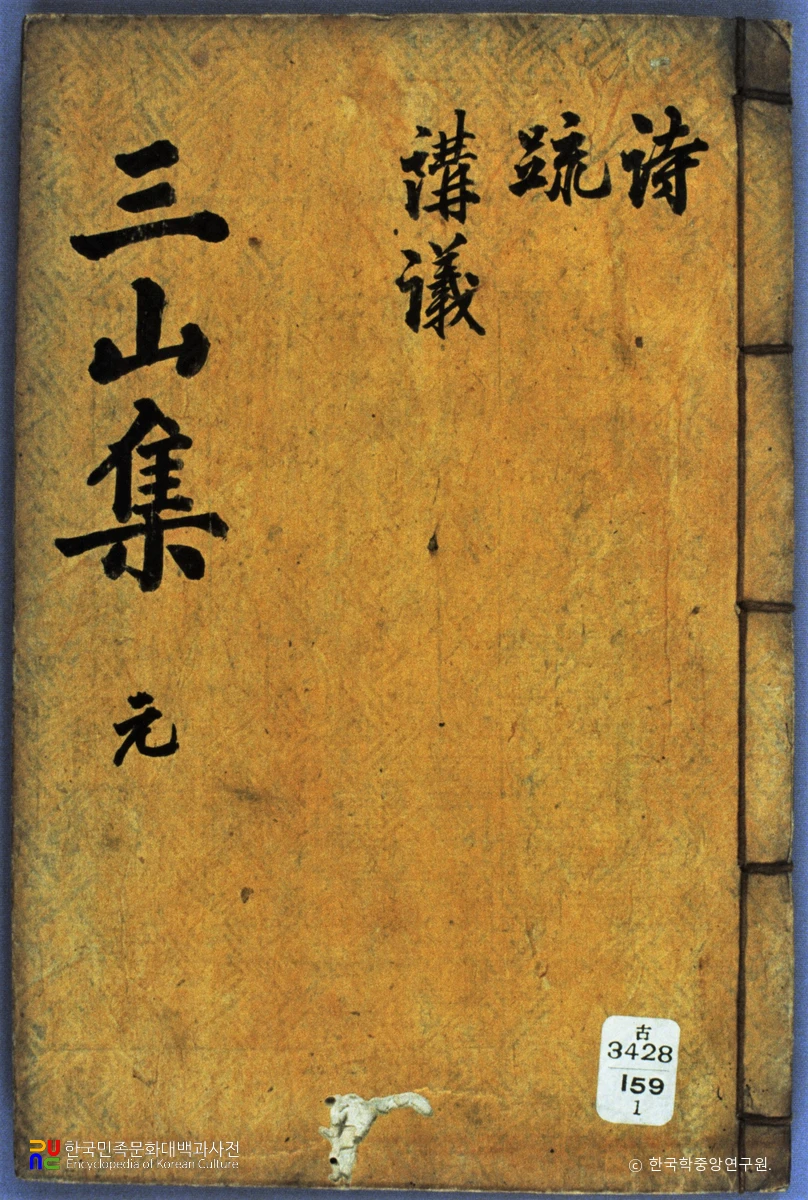 詩
疏
講議
三山集 元
古
3428
159
1
한국민족문화대백과사전
Encyclopedia of Korean Culture
© 한국학중앙연구원.